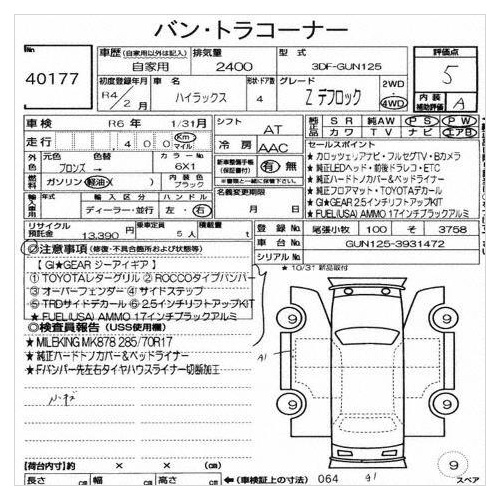 バン・トラコーナー
No
40177
車歴 (自家用以外は記入)
自家用
排気量
2400
型式
3DF-GUN125
評価点
5
初度登録年月
R4/2月
車名
ハイラックス
形状・ドア数
4
グレード
Z デフロック
2WD
4WD
内装補助評価
A
車検
R6 年 1/31月
シフト
AT
純正品 SR 純AW PS PW
カワ TV ナビ エアB
走行
400
Km
マイル
冷房
AAC
外色
元色
色替
カラーNo
ブロンズ →
6X1
燃料
ガソリン 軽油
内装色
ブラック
新車整備手帳(保証書付)
有・無
輸入車
輸入区分
ハンドル
ディーラー・並行
左・右
名義変更期限
月 日
セールスポイント
★ カロッツェリアナビ・フルセグTV・Bカメラ
★ 純正LEDヘッド・前後ドラレコ・ETC
★ 純正ハードトノカバー&ベッドライナー
★ 純正フロアマット・TOYOTAデカール
★ GI★GEAR 2.5インチリフトアップKIT
★ FUEL(USA) AMMO 17インチブラックアルミ
リサイクル預託金
13,390 円
乗車定員
5 人
積載量
t
登録No
尾張小牧 100 そ 3758
車台No
GUN125-3931472
シリアルNo
★ 10/31 新品取付
注意事項 (修復・不具合箇所および状態等)
【 GI★GEAR ジーアイギア 】
① TOYOTAレターグリル ② ROCCOタイプバンパー
③ オーバーフェンダー ④ サイドステップ
⑤ TRDサイドデカール ⑥ 2.5インチリフトアップKIT
★ FUEL(USA) AMMO 17インチブラックアルミ
◎検査員報告 (USS使用欄)
★ MILEKING MK878 285/70R17
★ 純正ハードトノカバー&ベッドライナー
★ Fバンパー先左右タイヤハウスライナー切断加工
A1
9
9
9
9
【荷台内寸】約 × × (cm)
長さ cm 幅 cm 高さ cm
←(車検証上の寸法)
064
A1
9
スペア